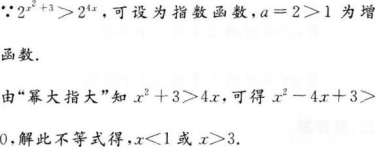 ∵2^{x²+3}>2^{4x},可设为指数函数,a=2>1 为增
函数.
由“幂大指大”知 x²+3>4x,可得 x²-4x+3>
0,解此不等式得,x<1 或 x>3.